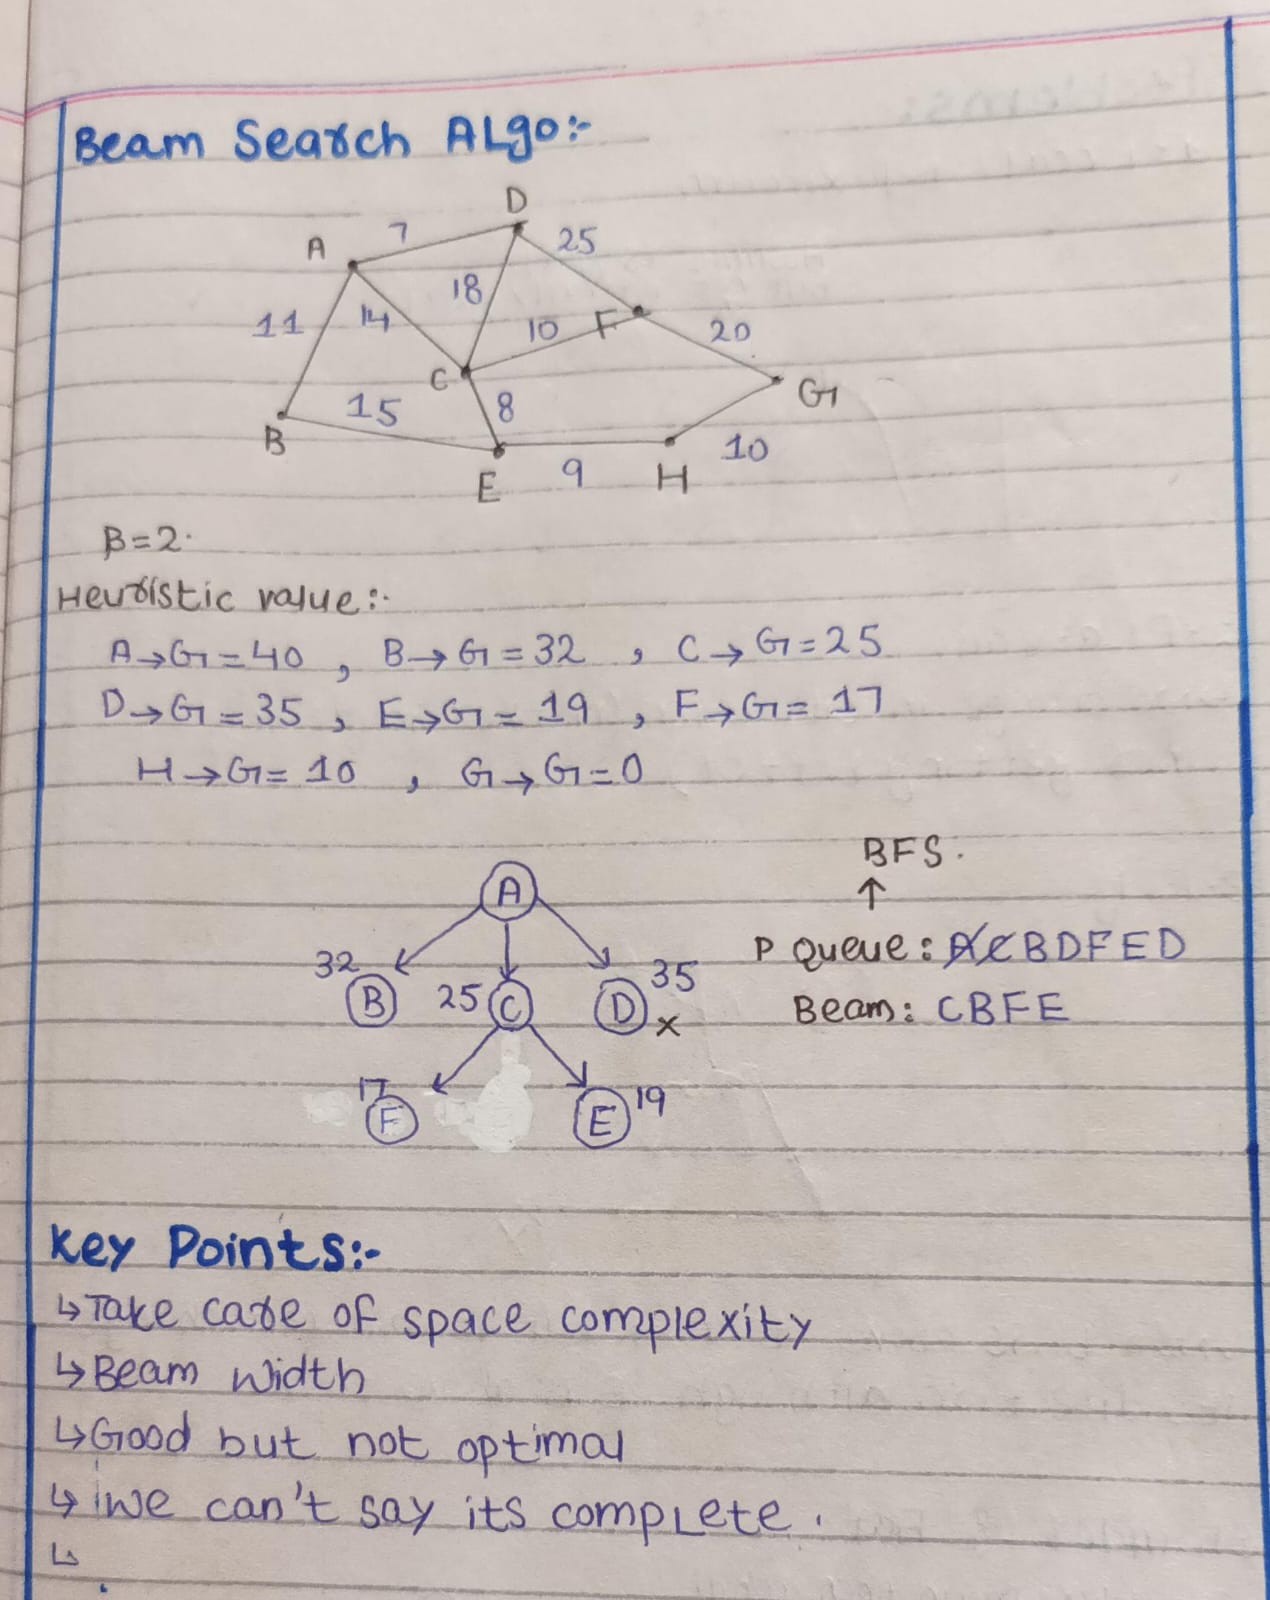 Beam Search ALgo:-
D
A 7 25
18
11 14 10 F 20
C G
15 8
B 10
E 9 H
β=2.
Heuristic value:-
A→G=40 , B→G=32 , C→G=25
D→G=35 , E→G=19 , F→G=17
H→G=10 , G→G=0
BFS.
↑
A P Queue: ACBDFED
32 35
B 25 C D x Beam: CBFE
17 19
F E
Key Points:-
↳Take care of space complexity
↳Beam Width
↳Good but not optimal
↳we can't say its compLete.
↳